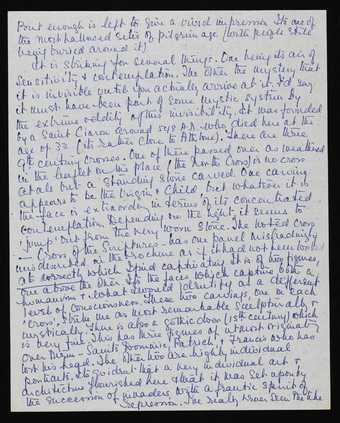 But enough is left to give a vivid impression. Its one of
the most hallowed sites of pilgrimage (with people still
being buried around it)
It is striking for several things. One being its air of
sensitivity & contemplation. The other the mystery that
it is invisible until you actually arrive at it. I'd say
it must have been part of some mystic system by
the extreme validity of this invisibility. It was founded
by a Saint Ciaran around 548 A.D. who died here at the
age of 33 (its rather close to Athlone). There are three
9th century crosses. One of them passed over as weathered
in the neglect in his place (the North Cross) is no cross
at all but a standing stone carved. One carving
appears to be the Virgin & Child but whatever it is
the face is extraordinary in terms of its concentrated
contemplation. Depending on the light it seems to
'jump' out from the very worn stone. The noted cross
– Cross of the Scriptures – has one panel
understood in the brochure as if it had not been looked
at correctly which I find captivating. It is of two figures,
one above the other. It's the faces which capture both a
humanism & what I would identify as a different
level of consciousness. These two carvings, one on each
'cross' strike me as most remarkable sculpturally &
mystically. There is also a Gothic door (15th century) which
is very fine. This has three figures of utmost originality
over them – Saints Dominic, Patrick & Francis who has
lost his head. The other two are highly individual
portraits. Its evident that a very individual art &
architecture flourished here & that it was set upon by
the succession of invaders with a frantic spirit of
repression. The really known seen the like